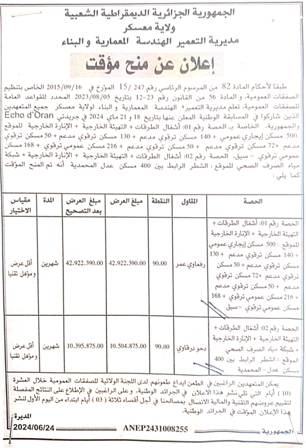 الجمهورية الجزائرية الديمقراطية الشعبية
ولاية معسكر
مديرية التعمير الهندسة المعمارية و البناء
إعلان عن منح مؤقت
طبقا لأحكام المادة 82 من المرسوم الرئاسي رقم 247/ 15 المؤرخ في 2015/09/16 الخاص بتنظيم
الصفقات العمومية، و المادة 56 من القانون رقم 12-23 بتاريخ 2023/08/05 المحدد للقواعد العامة
للصفقات العمومية، تعلم مديرية التعمير الهندسة المعمارية و البناء لولاية معسكر جميع المتعهدين
الذين شاركوا في المسابقة الوطنية المعلن عنها بتاريخ 18 و 21 ماي 2024 في جريدتي Echo d'Oran
و الجمهورية، الخاصة بـ الحصة رقم 01: أشغال الطرقات + التهيئة الخارجية + الإنارة الخارجية
للموقع: 500 مسكن إيجاري عمومي + 140 مسكن ترقوي مدعم + 130 مسكن ترقوي مدعم + 50 مسكن
مدعم + 72 مسكن ترقوي مدعم + 50 مسكن ترقوي مدعم + 216 مسكن عمومي ترقوي + 168 مسكن
عمومي ترقوي - سيق، الحصة رقم 02: أشغال الطرقات + التهيئة الخارجية + الإنارة الخارجية + شبكة
مياه الصرف الصحي للموقع: الشطر الرابط بين 400 مسكن عدل المحمدية أنه تم المنح المؤقت
كما يلي:
الحصة | المقاول | النقطة | مبلغ العرض | مبلغ العرض بعد التصحيح | المدة | مقياس الاختيار
الحصة رقم 01: أشغال الطرقات + التهيئة الخارجية + الإنارة الخارجية للموقع: 500 مسكن إيجاري عمومي + 140 مسكن ترقوي مدعم + 130 مسكن ترقوي مدعم + 50 مسكن ترقوي مدعم + 72 مسكن ترقوي مدعم + 50 مسكن ترقوي مدعم + 216 مسكن عمومي ترقوي + 168 مسكن عمومي ترقوي - سيق | رفعاوي عمر | 90.00 | 42.922.390.00 | 42.922.390.00 | شهرين | أقل عرض و مؤهل تقنيا
الحصة رقم 02: أشغال الطرقات + التهيئة الخارجية + الإنارة الخارجية + شبكة مياه الصرف الصحي للموقع: الشطر الرابط بين 400 مسكن عدل - المحمدية | دحو درقاوي | 90.00 | 10.504.875.00 | 10.395.875.00 | شهرين | أقل عرض و مؤهل تقنيا
يمكن المتعهدين الراغبين في الطعن إيداع طعونهم لدى اللجنة الولائية للصفقات العمومية خلال العشرة
(10) أيام التي تلي نشر هذا الإعلان في الجرائد الوطنية، و على الراغبين في الإطلاع على النتائج المفصلة
لتقييم عروضهم التقنية و المالية الاتصال بمصالحنا في أجل أقصاه ثلاثة (03) أيام ابتداء من اليوم الأول لنشر
هذا الإعلان المؤقت في الجرائد الوطنية.
المديرة
الجمهورية
ANEP2431008255
2024/06/24